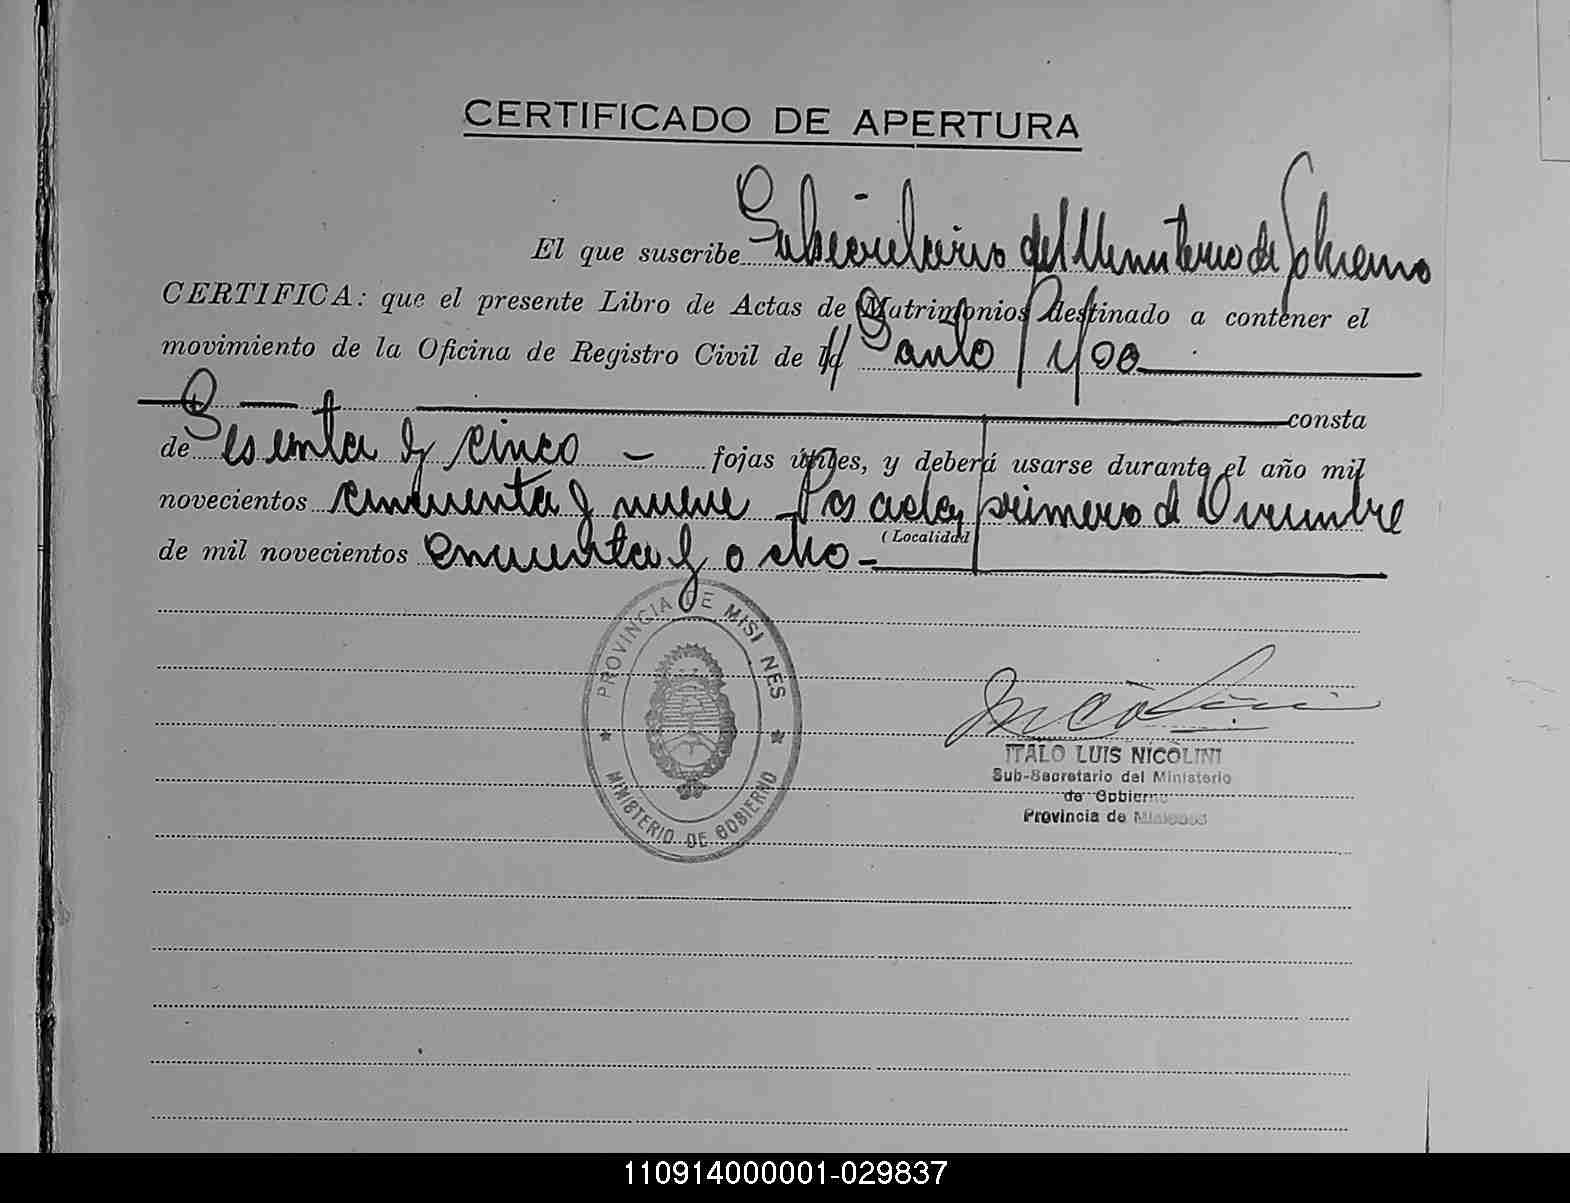 CERTIFICADO DE APERTURA
El que suscribe Subsecretario del Ministerio de Gobierno
CERTIFICA: que el presente Libro de Actas de Matrimonios destinado a contener el
movimiento de la Oficina de Registro Civil de Santo Pipó
consta
de Sesenta y cinco - fojas útiles, y deberá usarse durante el año mil
novecientos cincuenta y nueve - Posadas, primero de Diciembre
(Localidad
de mil novecientos cincuenta y ocho -
PROVINCIA DE MISIONES
MINISTERIO DE GOBIERNO
ITALO LUIS NICOLINI
Sub-Secretario del Ministerio
de Gobierno
Provincia de Misiones
110914000001-029837